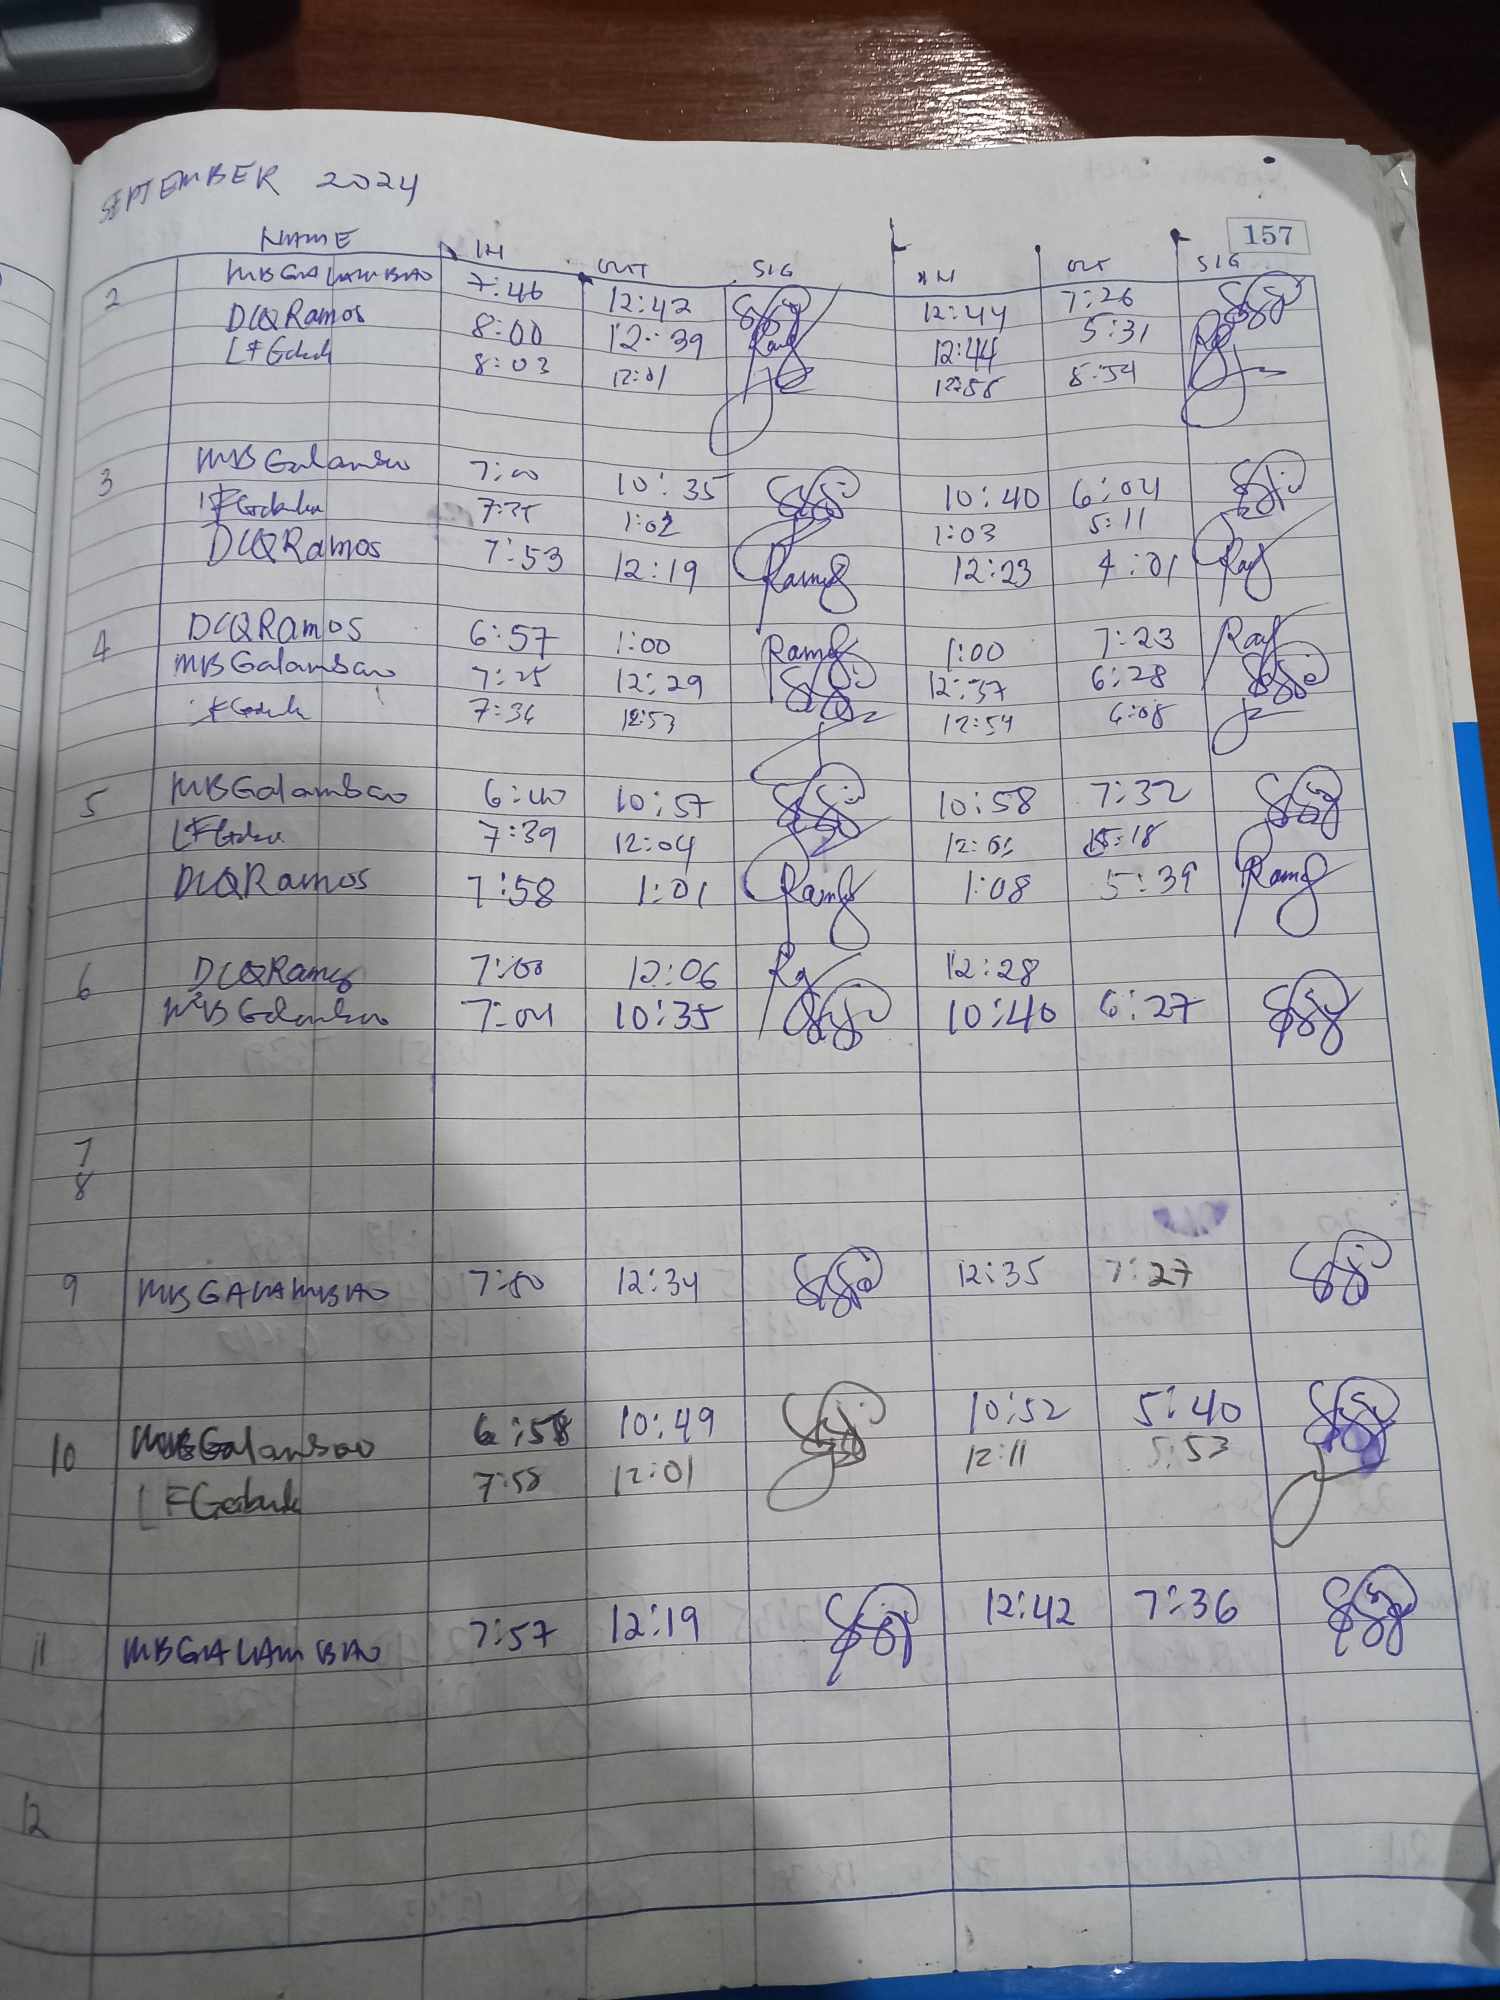 SEPTEMBER 2024
157
NAME IN OUT SIG IN OUT SIG
2 MBGALAMBAO 7:46 12:42 12:44 7:26
DCQRamos 8:00 12:39 12:44 5:31
LF 8:03 12:01 5:54
3 MBGalambao 7:00 10:35 10:40 6:04
LF 1:02 1:03 5:11
DCQRamos 7:53 12:19 Ramos 12:23 4:01
4 DCQRamos 6:57 1:00 Ramos 1:00 7:23
MBGalambao 7:25 12:29 12:37 6:28
12:53 12:54 6:08
5 MBGalambao 6:40 10:57 10:58 7:32
LF 7:39 12:04 5:18
DCQRamos 7:58 1:01 Ramos 1:08 5:39 Ramos
6 DCQRamos 7:00 12:06 12:28
MBGalambao 7:04 10:35 10:40 6:27
7
8
9 MBGALAMBAO 12:34 12:35 7:27
10 MBGalambao 6:58 10:49 10:52 5:40
LF 7:58 12:01 12:11 5:53
11 MBGALAMBAO 7:57 12:19 12:42 7:36
12